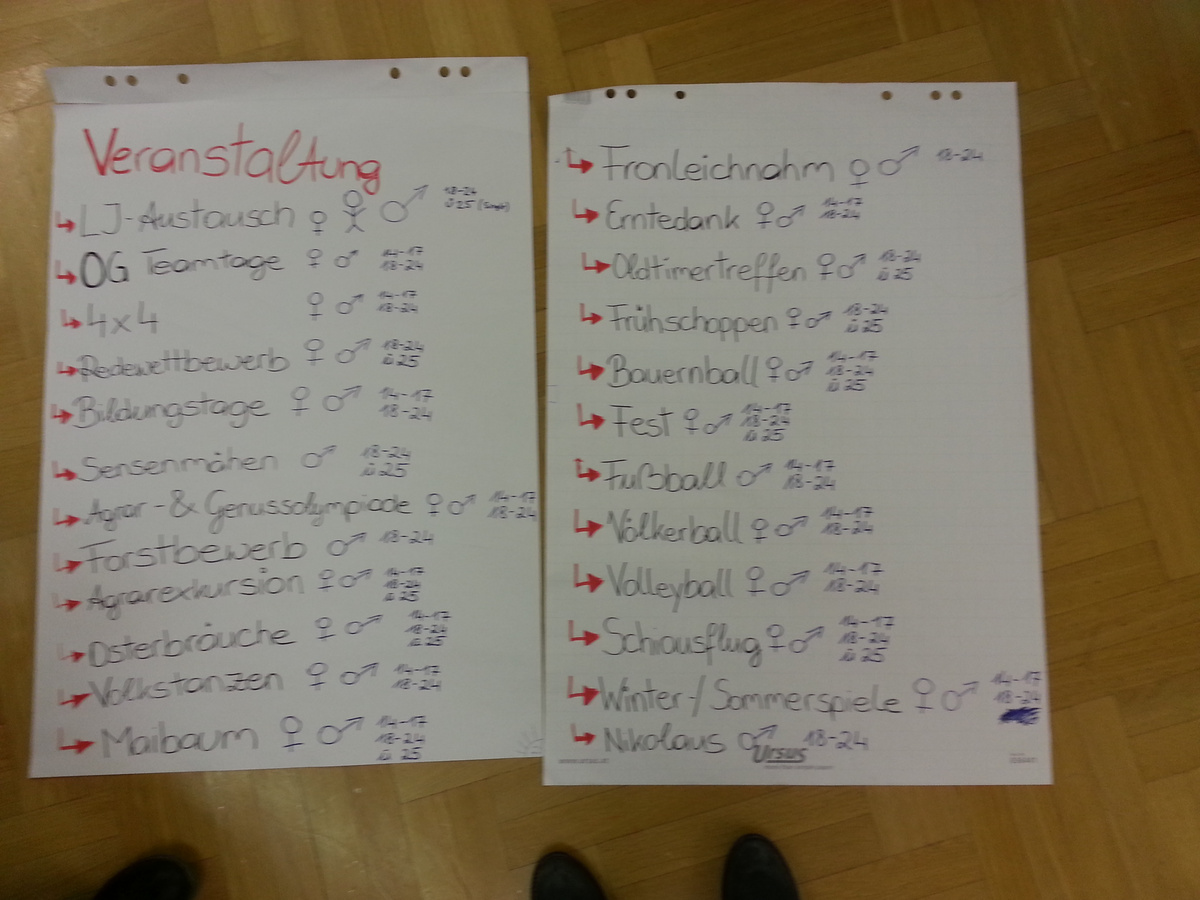 Veranstaltung
↳ LJ-Austausch ♀ ♂ 18-24
ü25
↳ OG Teamtage ♀ ♂ 14-17
18-24
↳ 4x4 ♀ ♂ 14-17
18-24
↳ Redewettbewerb ♀ ♂ 18-24
ü25
↳ Bildungstage ♀ ♂ 14-17
18-24
↳ Sensenmähen ♂ 18-24
ü25
↳ Agrar-& Genussolympiade ♀ ♂ 14-17
18-24
↳ Forstbewerb ♂ 18-24
↳ Agrarexkursion ♀ ♂ 14-17
18-24
ü25
↳ Osterbräuche ♀ ♂ 14-17
18-24
ü25
↳ Volkstanzen ♀ ♂ 14-17
18-24
↳ Maibaum ♀ ♂ 14-17
18-24
ü 25
↳ Fronleichnahm ♀ ♂ 18-24
↳ Erntedank ♀ ♂ 14-17
18-24
↳ Oldtimertreffen ♀ ♂ 18-24
ü25
↳ Frühschoppen ♀ ♂ 18-24
ü25
↳ Bauernball ♀ ♂ 14-17
18-24
ü25
↳ Fest ♀ ♂ 14-17
18-24
ü25
↳ Fußball ♂ 14-17
18-24
↳ Völkerball ♀ ♂ 14-17
18-24
↳ Volleyball ♀ ♂ 14-17
18-24
↳ Schiausflug ♀ ♂ 14-17
18-24
ü 25
↳ Winter-/Sommerspiele ♀ ♂ 14-17
18-24
↳ Nikolaus ♂ 18-24
Ursus
www.ursus.at